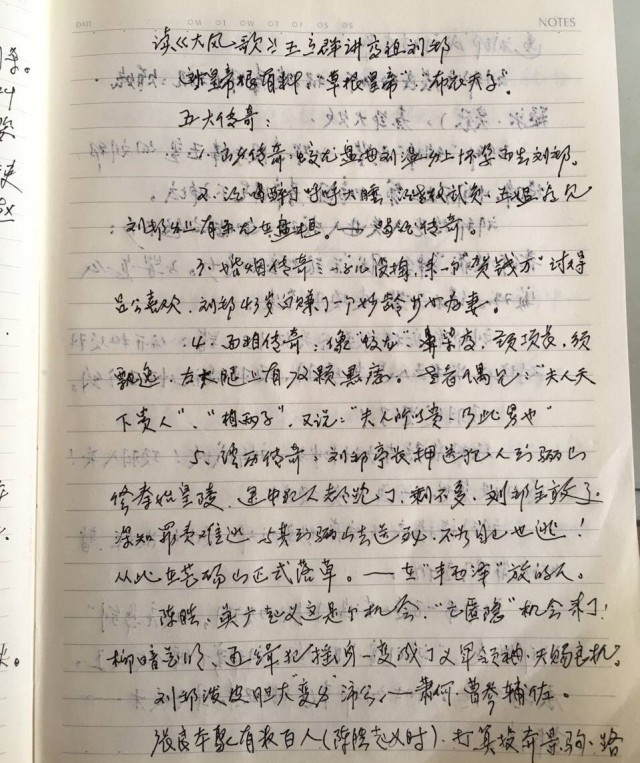 DATE
NOTES
读《大风歌》王立群讲高祖刘邦
做皇帝很有料,"草根皇帝"、"布衣天子"。
五大传奇:
1. 出生传奇:蛟龙盘曲刘温身上怀孕而生刘邦。
2. 酒喝醉了呼呼大睡,王媪看见
刘邦身上有龙在盘桓。——喝酒传奇。
3. 婚姻传奇:一个"贺钱万"讨得
吕公喜欢,刘邦43岁白赚了一个妙龄少女为妻。
4. 面相传奇:像"蛟龙"鼻梁高,颈项长,须
飘逸,左大腿上有72颗黑痣。老者偶见:"夫人天
下贵人"、"相两子",又说:"夫人所以贵,乃此男也"
5. 释放传奇:刘邦亭长押送犯人到骊山
修秦始皇陵,途中犯人都跑了,剩不多,刘邦全放了。
深知罪责难逃,与其到骊山去送死,不如自己也逃!
从此在芒砀山正式落草。——在"丰西泽"放的人。
陈胜、吴广起义这是个机会,"亡匿隐"机会来了!
柳暗花明,通缉犯摇身一变成了义军领袖,天赐良机。
刘邦泼皮胆大"变身"沛公,——萧何、曹参辅佐。
张良本聚有数百人(陈胜起义时),打算投奔景驹,路